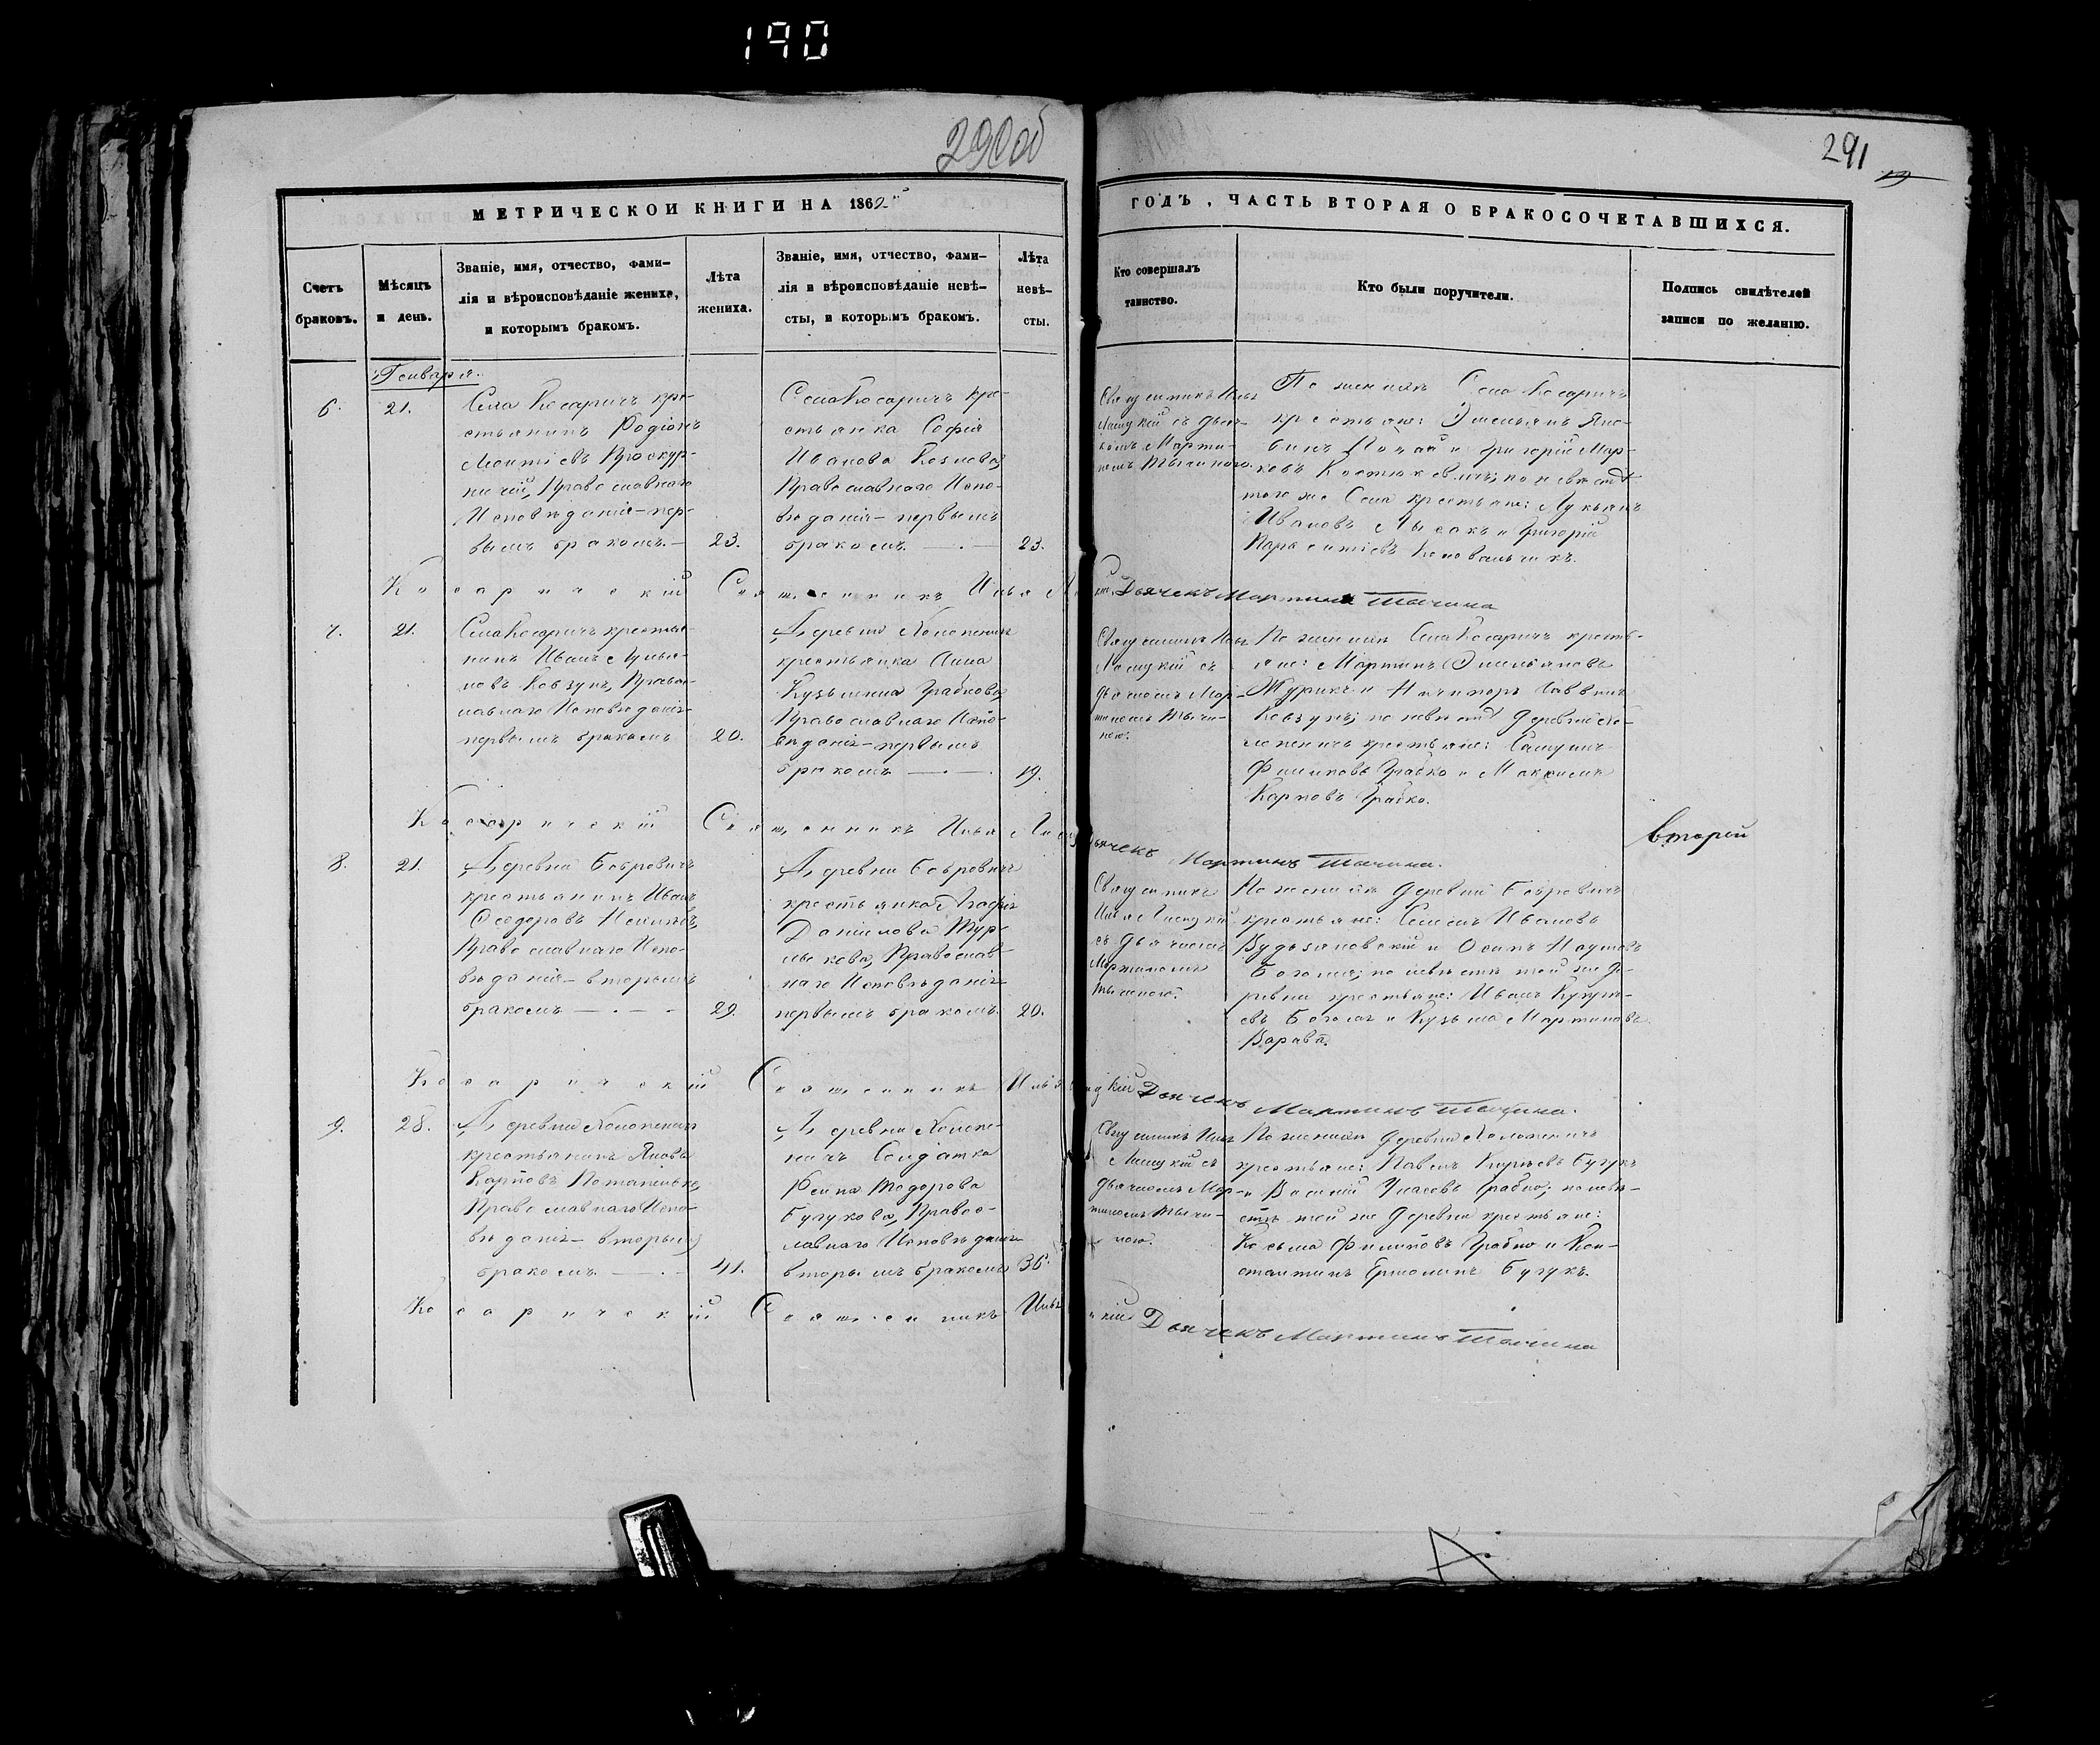 190
290 об
291
19
МЕТРИЧЕСКОЙ КНИГИ НА 1862й
ГОДЪ, ЧАСТЬ ВТОРАЯ О БРАКОСОЧЕТАВШИХСЯ.
Счетъ
браковъ.
Мѣсяцъ
и день.
Званіе, имя, отчество, фами-
лія и вѣроисповѣданіе жениха,
и которымъ бракомъ.
Лѣта
жениха.
Званіе, имя, отчество, фами-
лія и вѣроисповѣданіе невѣ-
сты, и которымъ бракомъ.
Лѣта
невѣ-
сты.
Кто совершалъ
таинство.
Кто были поручители.
Подпись свидѣтелей
записи по желанію.
Генваря.
6.
21.
Села Косаричъ кре-
стьянинъ Родіонъ
Леонтіевъ
Православнаго
Исповѣданія – пер-
вымъ бракомъ. –
23.
Села Косаричъ кре-
стьянка Софія
Иванова Козлова,
Православнаго Испо-
вѣданія – первымъ
бракомъ. – . –
23.
Священникъ Илья
съ Дьяч-
комъ Марти-
номъ
По женихѣ Села Косаричъ
крестьяне: Эмельянъ
и Григорій Мар-
ковъ по невѣстѣ
того же Села крестьяне: Лукьянъ
Ивановъ Лысакъ и Григорій
Коновальчикъ.
Косаричскій Священникъ Илья
Дьячекъ Мартинъ Тычина
7.
21.
Села Косаричъ крестья-
нинъ Иванъ Лукья-
новъ Ковзунъ, Право-
славнаго Исповѣданія
первымъ бракомъ
20.
Деревни Холопеничъ
крестьянка Анна
Кузьмина Грабкова,
Православнаго Испо-
вѣданія – первымъ
бракомъ – . – .
19.
Священникъ Илья
съ
Дьячкомъ Мар-
тиномъ Тычи-
ною.
По женихѣ Села Косаричъ кресть-
яне: Мартинъ Эмельяновъ
Журикъ и Ничипоръ
Ковзунъ; по невѣстѣ деревни Хо-
лопеничъ крестьяне:
Филиповъ Грабко и Максимъ
Карповъ Грабко.
Косаричскій Священникъ Илья
Дьячекъ Мартинъ Тычина.
второй
8.
21.
Деревни Бобровичъ
крестьянинъ Иванъ
Ѳеодоровъ
Православнаго Испо-
вѣданія – вторымъ
бракомъ – . – .
29.
Деревни Бобровичъ
крестьянка Агафія
Данилова
Православ-
наго Исповѣданія
первымъ бракомъ.
20.
Священникъ
Илья
съ Дьячкомъ
Мартиномъ
Тычиною.
По женихѣ деревни Бобровичъ
крестьяне: Семенъ Ивановъ
и Осипъ Наумовъ
по невѣстѣ той же де-
ревни крестьяне: Иванъ
и Кузьма Мартиновъ
Варава.
Косаричскій Священникъ Илья
Дьячекъ Мартинъ Тычина.
9.
28.
Деревни Холопеничъ
крестьянинъ Яковъ
Карповъ Потапенько,
Православнаго Испо-
вѣданія – вторымъ
бракомъ. – . –
41.
Деревни Холопе-
ничъ Солдатка
Тодорова
Бугукова, Правос-
лавнаго Исповѣданія
вторымъ бракомъ
36.
Священникъ Илья
съ
Дьячкомъ Мар-
тиномъ Тычи-
ною.
По женихѣ деревни Холопеничъ
крестьяне: Павелъ Бугукъ
и Василій Грабко; по невѣ-
стѣ той же деревни крестьяне:
Косьма Филиповъ Грабко и Кон-
стантинъ Бугукъ.
Косаричскій Священникъ Илья
Дьячекъ Мартинъ Тычина